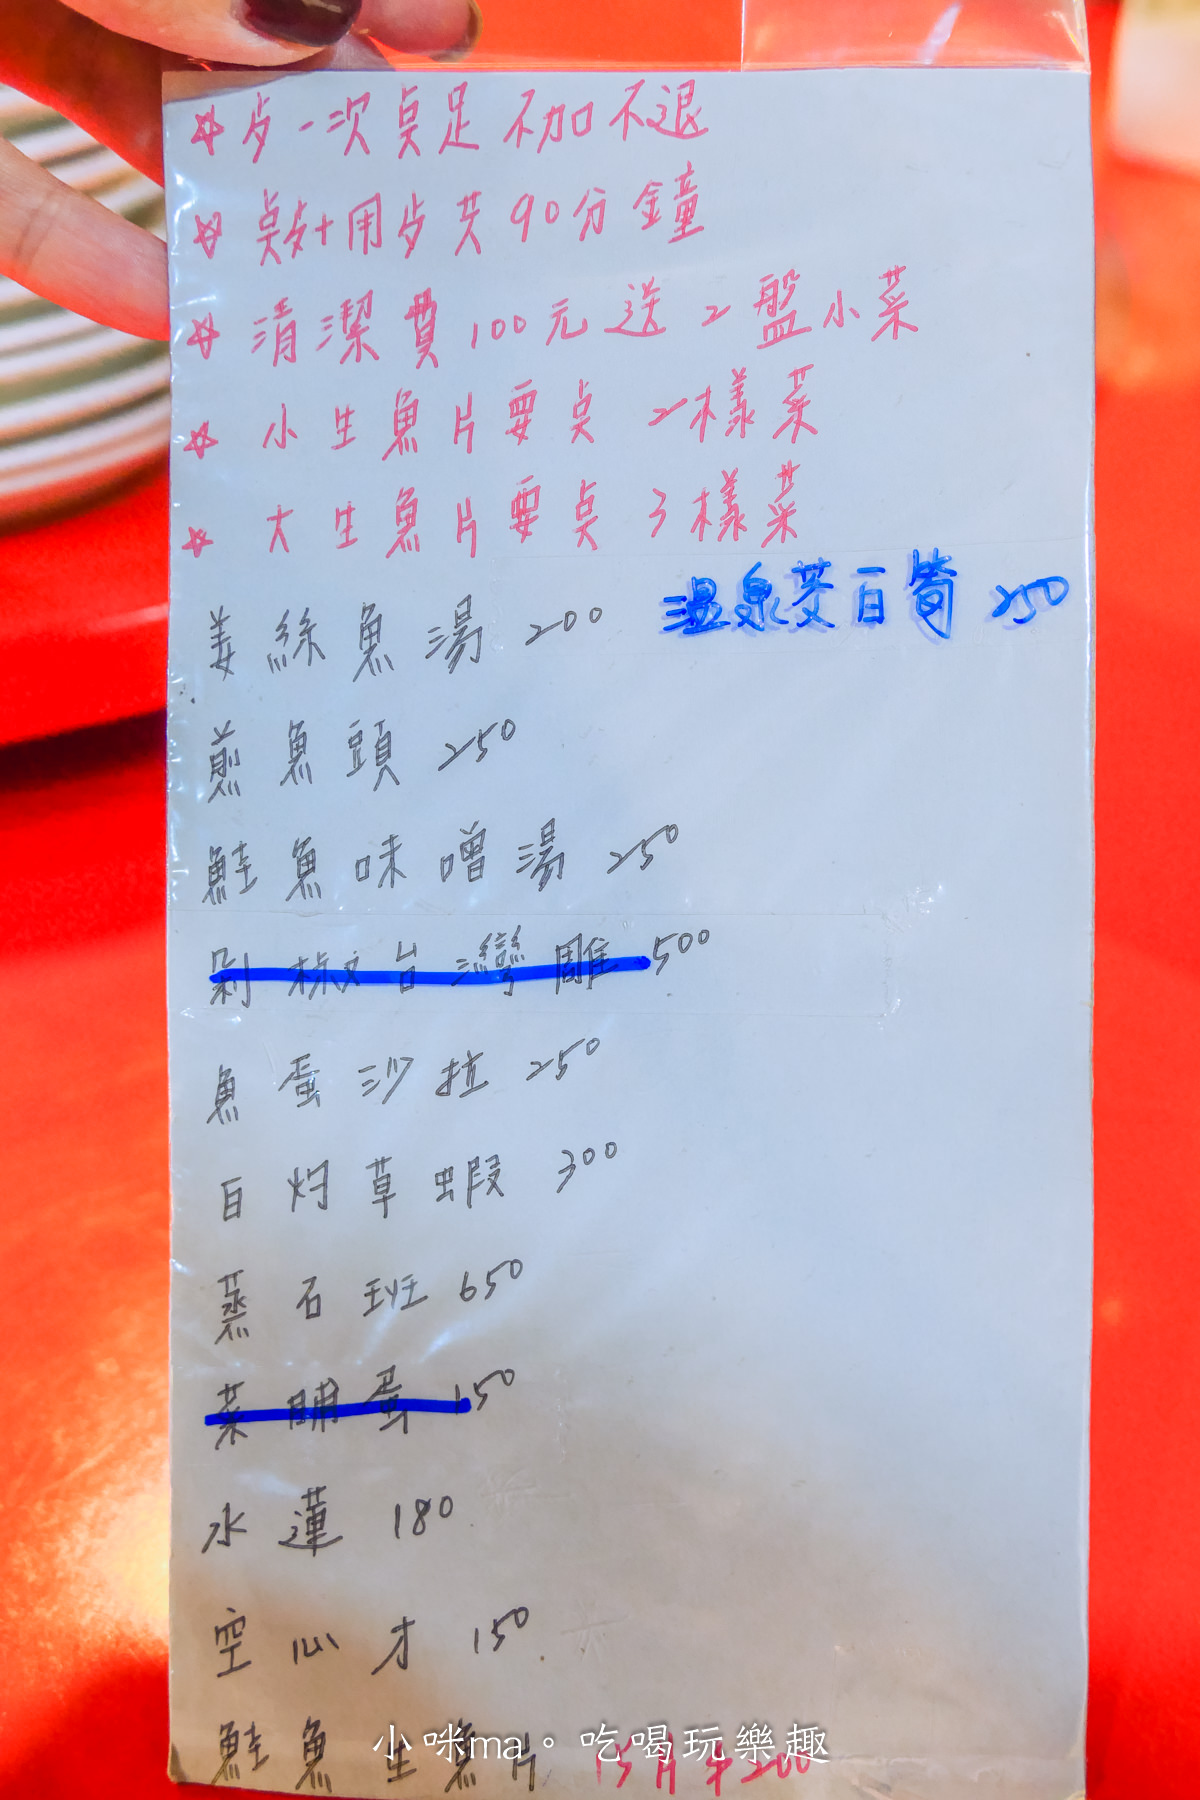 ☆ 歩一次点足 不加不退
☆ 点歺+用歩共90分鐘
☆ 清潔費100元送2盤小菜
☆ 小生魚片要点2樣菜
☆ 大生魚片要点3樣菜
姜絲魚湯 200 温泉茭白筍 250
煎魚頭 250
鮭魚味噌湯 250
剁椒台灣雕 500
魚蛋沙拉 250
白灼草蝦 300
蒸石班 650
菜脯蛋 150
水蓮 180
空心才 150
鮭魚生魚片 15片 200
小咪ma。吃喝玩樂趣